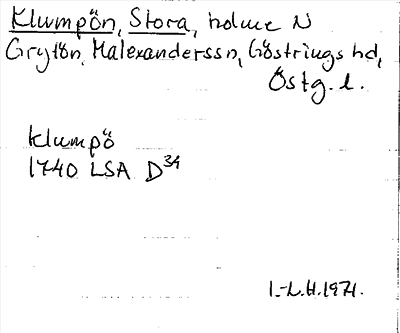 Klumpön, Stora, holme N
Grytön, Malexanderssn, Göstrings hd,
Östg. l.
Klumpö
1740 LSA D34
I.-L.H. 1971.